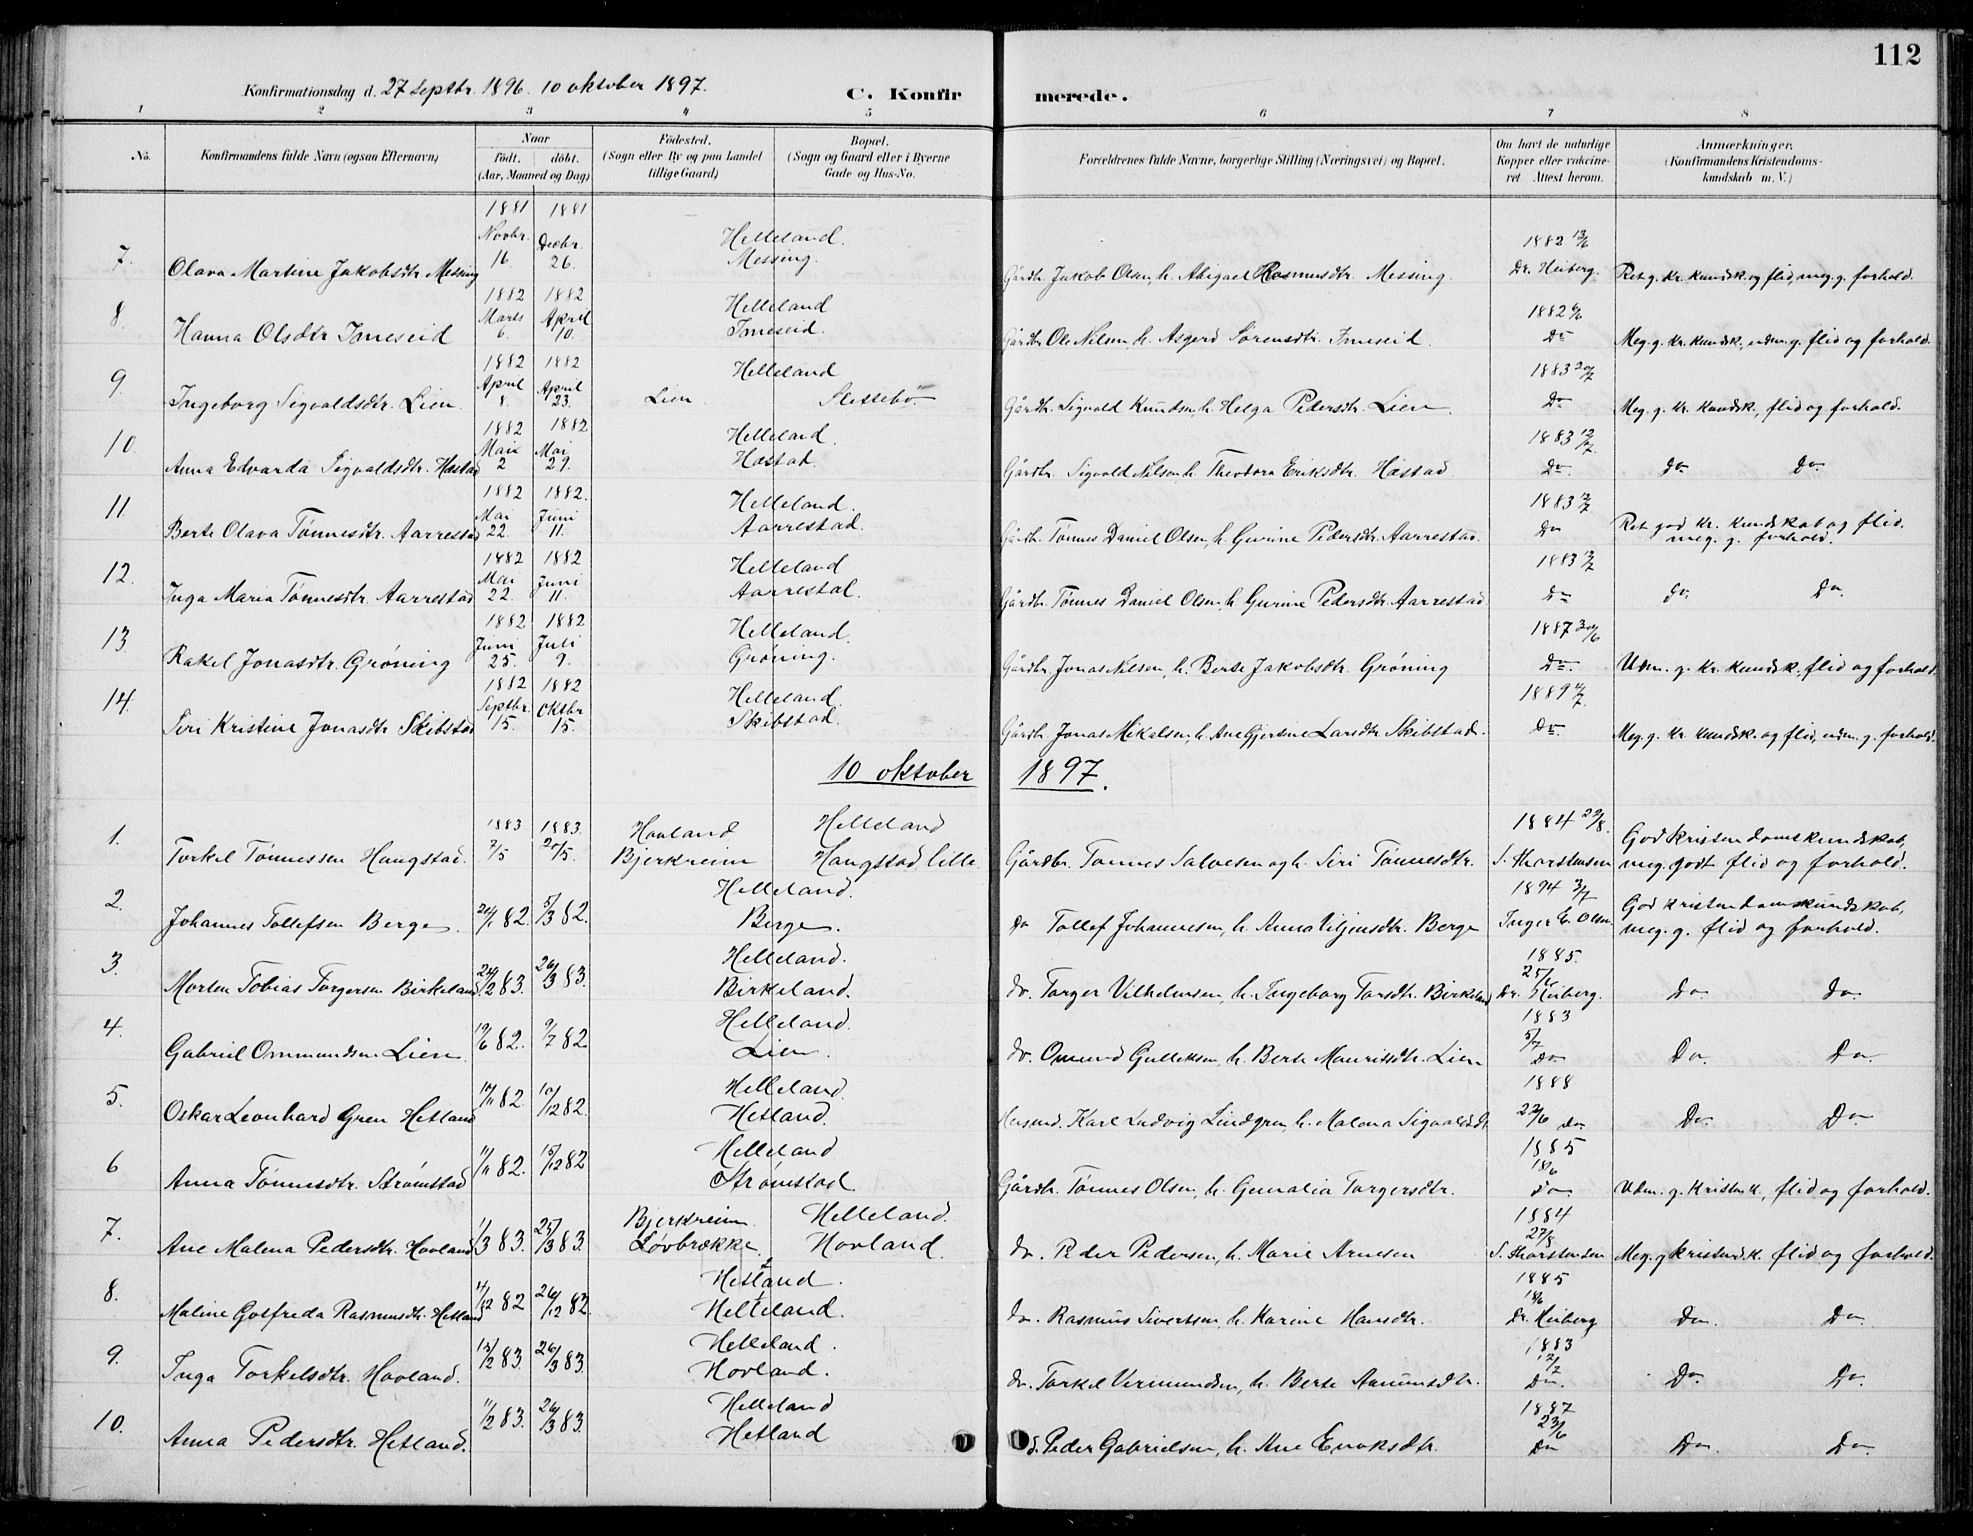 112
Konfirmationsdag d. 27 Septbr. 1896. 10 oktober 1897.
C. Konfirmerede.
1 2 3 4 5 6 7 8
No.
Konfirmandens fulde Navn (ogsaa Efternavn)
Naar
födt. döbt.
(Aar, Maaned og Dag)
Födested.
(Sogn eller By og paa Landet
tillige Gaard)
Bopæl.
(Sogn og Gaard eller i Byerne
Gade og Hus-No.
Forældrenes fulde Navne, borgerlige Stilling (Næringsvei) og Bopæl.
Om havt de naturlige
Kopper eller vakcine-
ret Attest herom.
Anmærkninger.
(Konfirmandens Kristendoms-
kundskab m. V.)
7. Olava Martine Jakobsdtr. Messing 1881 Novbr. 16 1881 Decbr. 26. Helleland. Messing. Gårdbr. Jakob Olsen, h. Abigael Rasmusdtr. Messing. 1882 13/6 Dr. Heiberg. Ret g. kr. kundsk. og flid, meg. g. forhold.
8. Hanna Olsdtr Imeseid 1882 Marts 6. 1882 April 10. Helleland Imeseid. Gårdbr. Ole Nilsen, h. Asgerd Sørensdtr. Imeseid. 1882 6/6 Do Meg. g. kr. kundsk., udm. g. flid og forhold.
9 Ingeborg Sigvaldsdtr. Lien. 1882 April 8. 1882 April 23. Helleland Lien Slettebö. Gårdbr. Sigvald Knudsen, h. Helga Pedersdtr. Lien. 1883 20/7 Do Meg. g. kr. kundsk., flid og forhold.
10. Anna Edvarda Sigvaldsdtr. Hæstad 1882 Mai 2 1882 Mai 29. Helleland. Hæstad. Gårdbr. Sigvald Nilsen h. Theodora Eriksdtr. Hæstad 1883 12/7. Do. do do.
11. Berte Olava Tønnesdtr. Aarrestad 1882 Mai 22. 1882. Juni 11. Helleland. Aarrestad. Gårdbr. Tønnes Daniel Olsen, h. Gurine Pedersdtr. Aarrestad. 1883 12/7 Do Ret god kr. kundskab og flid. meg. g. forhold.
12. Inga Maria Tønnesdtr. Aarrestad 1882 Mai 22. 1882 Juni 11. Helleland Aarrestad. Gårdbr. Tønnes Daniel Olsen, h. Gurine Pedersdtr. Aarrestad 1883 12/7 Do do. Do.
13. Rakel Jonasdtr. Grøning 1882 Juni 25. 1882 Juli 9. Helleland. Grøning. Gårdbr. Jonas Nilsen, h. Berte Jakobsdtr. Grøning 1887 30/6 Do. Udm. g. kr. kundsk., flid og forhold.
14. Siri Kristine Jonasdtr Skibstad 1882 Septbr. 15. 1882 Oktbr 15. Helleland. Skibstad. Gårdbr. Jonas Mikalsen, h. Ane Gjertine Larsdtr Skibstad. 1889 4/7. Do. Meg. g. kr. kundsk. og flid, udm. g. forhold.
10 oktober 1897.
1. Torkel Tønnessen Haugstad. 1883 7/5 1883. 20/5. Hovland Bjerkreim Helleland Haugstad lille. Gårdbr. Tønnes Salvesen og h. Siri Tønnesdtr. 1884 29/8. S. Thorstensen God kristendomskundskab, meg. godt flid og forhold.
2. Johannes Tollefsen Berge. 82. 5/3 82. Helleland. Berge. do Tollef Johannesen, h. Anna Viljemsdtr. Berge 1894 3/7 Inger E. Olsen. God kristendomskundskab, meg. g. flid og forhold.
3. Morten Tobias Torgersen Birkeland 83. 26/3 83. Helleland. Birkeland. do. Torger Vilhelmsen, h. Ingeborg Torsdtr. Birkeland 1885. 25/6 Dr. Heiberg. Do. Do.
4. Gabriel Ommundsen Lien. 19/6 82. 9/7 82 Helleland. Lien. do. Omund Gulleksen, h. Berte Mauritsdtr. Lien 1883 5/7 Do Do. Do.
5. Oskar Leonhard Gren Hetland 82. 10/12 82. Helleland. Hetland. Husmd. Karl Ludvig Lindgren, h. Malena Sigvaldsdt. 1888 22/6 do. Do. Do.
6 Anna Tønnesdtr. Strømstad 11/11 82. 15/12 82 Helleland Strømstad. Gårdbr. Tønnes Olsen, h. Gunalia Torgersdtr. 1885 18/6 do. Udm. g. Kristenk., flid og forhold.
7. Ane Malena Pedersdtr. Hovland 1/3 83. 25/3 83. Bjerkreim. Løvbrække. Helleland. Hovland. do. Peder Pedersen, h. Marie Arnesen 1884 27/8 S. Thorstensen Meg. g kristendsk. flid og forhold.
8. Maline Gotfreda Rasmusdtr. Hetland 14/12 82 26/12 82. Hetland. Helleland. do. Rasmus Sivertsen, h. Karine Hansdtr. 1885 18/6 Dr. Heiberg Do. Do.
9. Inga Torkelsdtr. Hovland. 15/2 83. 26/3 83. Helleland. Hovland. do. Torkel Vermundsen, h. Berte Aanunsdtr. 1883 12/7 Do. Do. Do.
10. Anna Pedersdtr. Hetland. 11/2 83. 26/3 83. Helleland Hetland d. Peder Gabrielsen, h. Ane Enoksdtr. 1887 23/6 Do Do. Do.